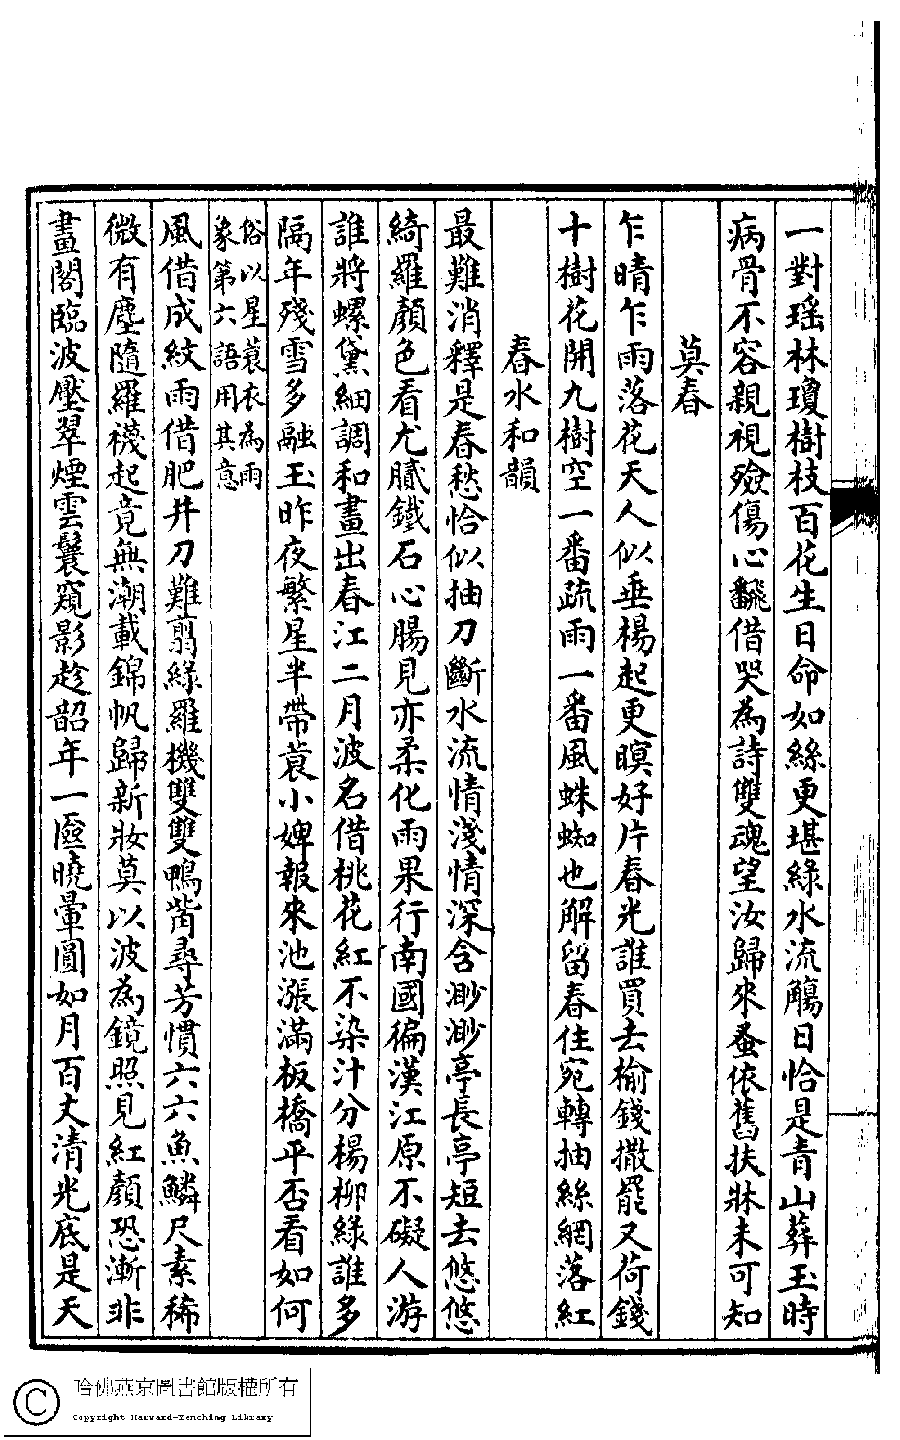 一對瑤林瓊樹枝百花生日命如絲更堪綠水流觴日恰是青山葬玉時
病骨不容親視殮傷心翻借哭為詩雙魂望汝歸來蚤依舊扶牀未可知
莫春
乍晴乍雨落花天人似垂楊起更瞑好片春光誰買去榆錢撒罷又荷錢
十樹花開九樹空一番疏雨一番風蛛蜘也解留春住宛轉抽絲網落紅
春水和韻
最難消釋是春愁恰似抽刀斷水流情淺情深含渺渺亭長亭短去悠悠
綺羅顏色看尤膩鐵石心腸見亦柔化雨果行南國徧漢江原不礙人游
誰將螺黛細調和畫出春江二月波名借桃花紅不染汁分楊柳綠誰多
隔年殘雪多融玉昨夜繁星半帶蓑小婢報來池漲滿板橋平否看如何
俗以星蓑衣為雨
象第六語用其意
風借成紋雨借肥并刀難翦綠羅機雙雙鴨觜尋芳慣六六魚鱗尺素稀
微有塵隨羅襪起竟無潮載錦帆歸新妝莫以波為鏡照見紅顏恐漸非
畫閣臨波壓翠煙雲鬟窺影趁韶年一匳曉暈圓如月百丈清光底是天
哈佛燕京圖書館版權所有
Copyright Harvard-Yenching Library